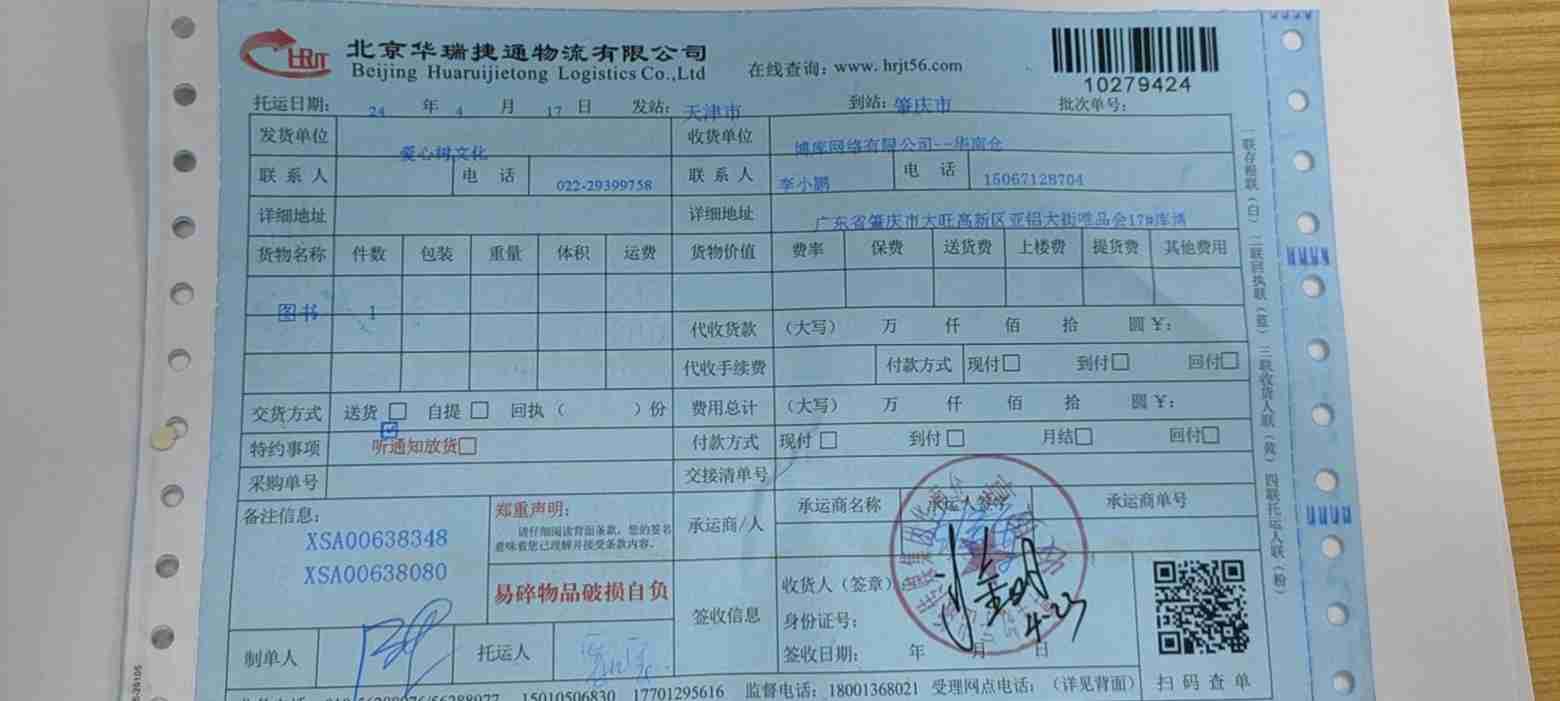 HRJT 北京华瑞捷通物流有限公司
Beijing Huaruijietong Logistics Co.,Ltd 在线查询：www.hrjt56.com
10279424
托运日期： 24 年 4 月 17 日 发站：天津市 到站：肇庆市 批次单号：
发货单位 爱心树文化 收货单位 博库网络有限公司--华南仓
联系人 电话 022-29399758 联系人 李小鹏 电话 15067128704
详细地址 详细地址 广东省肇庆市大旺高新区亚铝大街唯品会17#库博
货物名称 件数 包装 重量 体积 运费 货物价值 费率 保费 送货费 上楼费 提货费 其他费用
图书 1
代收货款 （大写） 万 仟 佰 拾 圆 ¥：
代收手续费 付款方式 现付□ 到付□ 回付□
交货方式 送货□ 自提□ 回执（ ）份 费用总计 （大写） 万 仟 佰 拾 圆 ¥：
特约事项 听通知放货□ 付款方式 现付□ 到付□ 月结□ 回付□
采购单号 交接清单号
备注信息： 郑重声明： 承运商/人 承运商名称 承运人签字 承运商单号
请仔细阅读背面条款，您的签名
意味着您已理解并接受条款内容。
XSA00638348
XSA00638080
易碎物品破损自负
签收信息 收货人（签章）
身份证号：
签收日期： 年 月 日
4-23
制单人 托运人
15010506830 17701295616 监督电话：18001368021 受理网点电话：（详见背面） 扫码查单
一联存根联（白） 二联回执联（蓝） 三联收货人联（黄） 四联托运人联（粉）